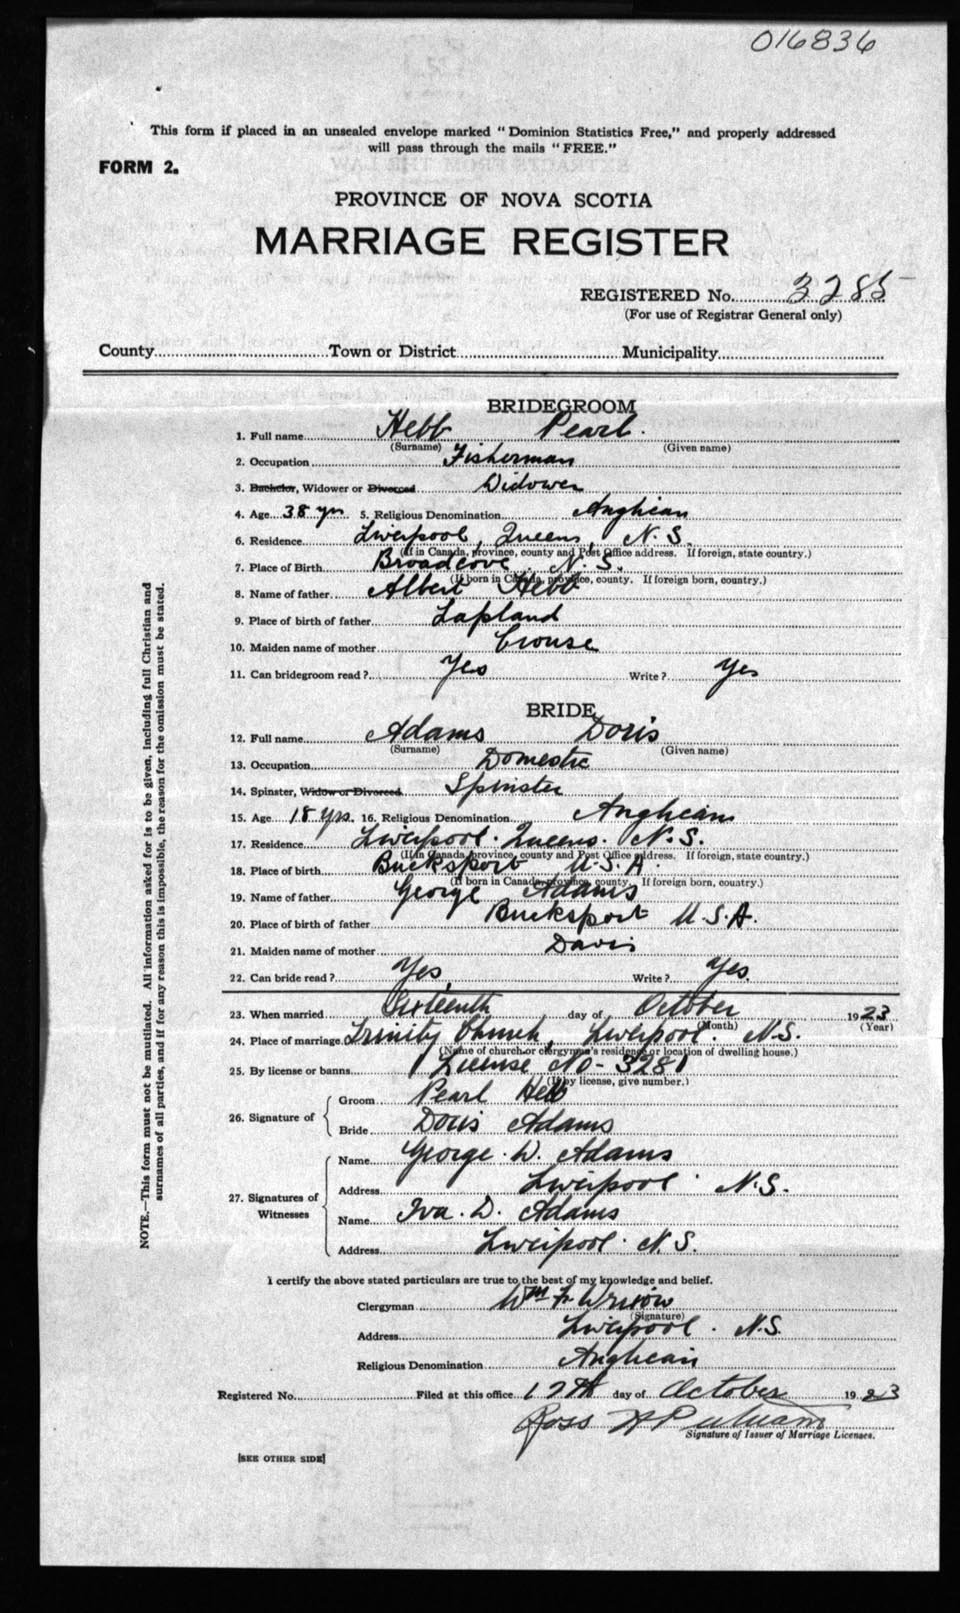 016836
This form if placed in an unsealed envelope marked "Dominion Statistics Free," and properly addressed
will pass through the mails "FREE."
FORM 2.
PROVINCE OF NOVA SCOTIA
MARRIAGE REGISTER
REGISTERED No. 3285
(For use of Registrar General only)
County Town or District Municipality
BRIDEGROOM
1. Full name Hebb Pearl.
(Surname) (Given name)
2. Occupation Fisherman
3. Bachelor, Widower or Divorced Widower
4. Age 38 yrs 5. Religious Denomination Anglican
6. Residence Liverpool, Queens, N.S.
(If in Canada, province, county and Post Office address. If foreign, state country.)
7. Place of Birth Broadcove N.S.
(If born in Canada, province, county. If foreign born, country.)
8. Name of father Albert Hebb
9. Place of birth of father Lapland
10. Maiden name of mother Crouse
11. Can bridegroom read? Yes Write? Yes
BRIDE
12. Full name Adams Doris
(Surname) (Given name)
13. Occupation Domestic
14. Spinster, Widow or Divorced Spinster
15. Age 18 yrs. 16. Religious Denomination Anglican
17. Residence Liverpool. Queens. N.S.
(If in Canada, province, county and Post Office address. If foreign, state country.)
18. Place of birth Bucksport U.S.A.
(If born in Canada, province, county. If foreign born, country.)
19. Name of father George Adams
20. Place of birth of father Bucksport U.S.A.
21. Maiden name of mother Davis
22. Can bride read? Yes Write? Yes.
23. When married Sixteenth day of October 1923
(Month) (Year)
24. Place of marriage Trinity Church, Liverpool. N.S.
(Name of church or clergyman's residence or location of dwelling house.)
25. By license or banns License No- 3281
(If by license, give number.)
26. Signature of
Groom Pearl Hebb
Bride Doris Adams
27. Signatures of Witnesses
Name George W. Adams
Address Liverpool N.S.
Name Iva. D. Adams
Address Liverpool. N.S.
I certify the above stated particulars are true to the best of my knowledge and belief.
Clergyman Wm F.
(Signature)
Address Liverpool. N.S.
Religious Denomination Anglican
Registered No. Filed at this office 17th day of October 1923
Ross
Signature of Issuer of Marriage Licenses.
[SEE OTHER SIDE]
NOTE.—This form must not be mutilated. All information asked for is to be given, including full Christian and
surnames of all parties, and if for any reason this is impossible, the reason for the omission must be stated.